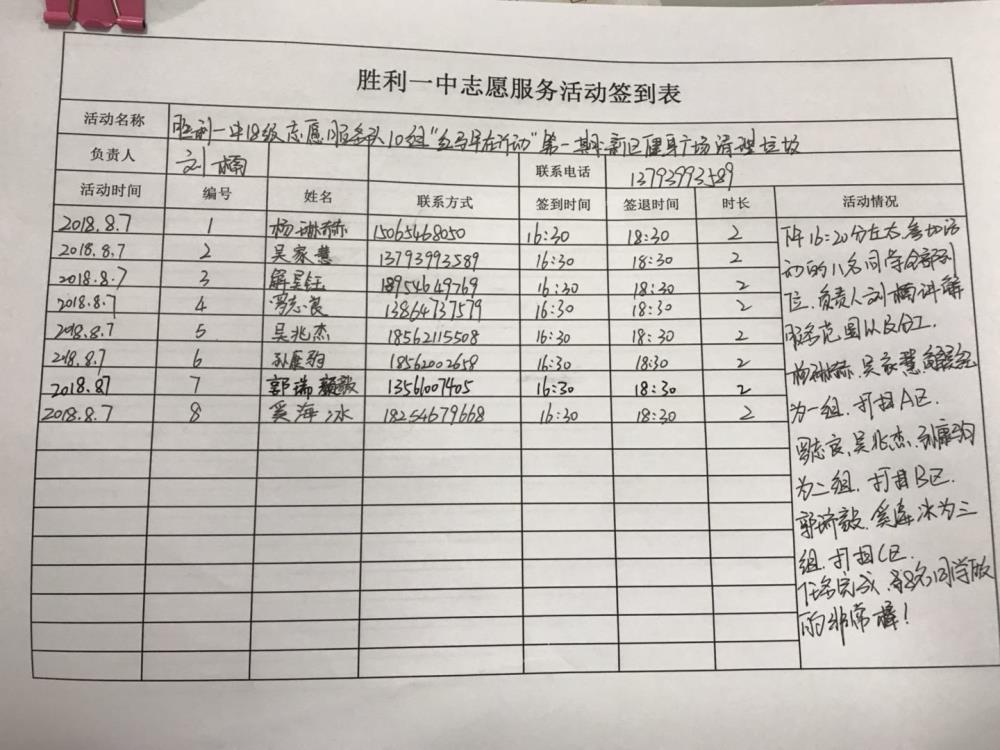 胜利一中志愿服务活动签到表
活动名称 胜利一中18级志愿服务队10组“红马甲在行动”第一期新区健身广场清理垃圾
负责人 刘楠 联系电话 13793993589
活动时间 编号 姓名 联系方式 签到时间 签退时间 时长 活动情况
2018.8.7 1 杨琳赫 15065468050 16:30 18:30 2
2018.8.7 2 吴家慧 13793993589 16:30 18:30 2
2018.8.7 3 解昱钰 18954649769 16:30 18:30 2
2018.8.7 4 冯志良 13864737579 16:30 18:30 2
2018.8.7 5 吴兆杰 18562115508 16:30 18:30 2
2018.8.7 6 孙康驹 18562002658 16:30 18:30 2
2018.87 7 郭瑞毅 13561007405 16:30 18:30 2
2018.8.7 8 奚海冰 18254679668 16:30 18:30 2
下午16:20分左右,参加活
动的八名同学全部到
位,负责人刘楠讲解
服务范围以及分工.
杨琳赫,吴家慧,解昱钰
为一组,打扫A区.
冯志良,吴兆杰,孙康驹
为二组,打扫B区.
郭瑞毅,奚海冰为三
组,打扫C区.
任务完成,8名同学做
的非常棒!